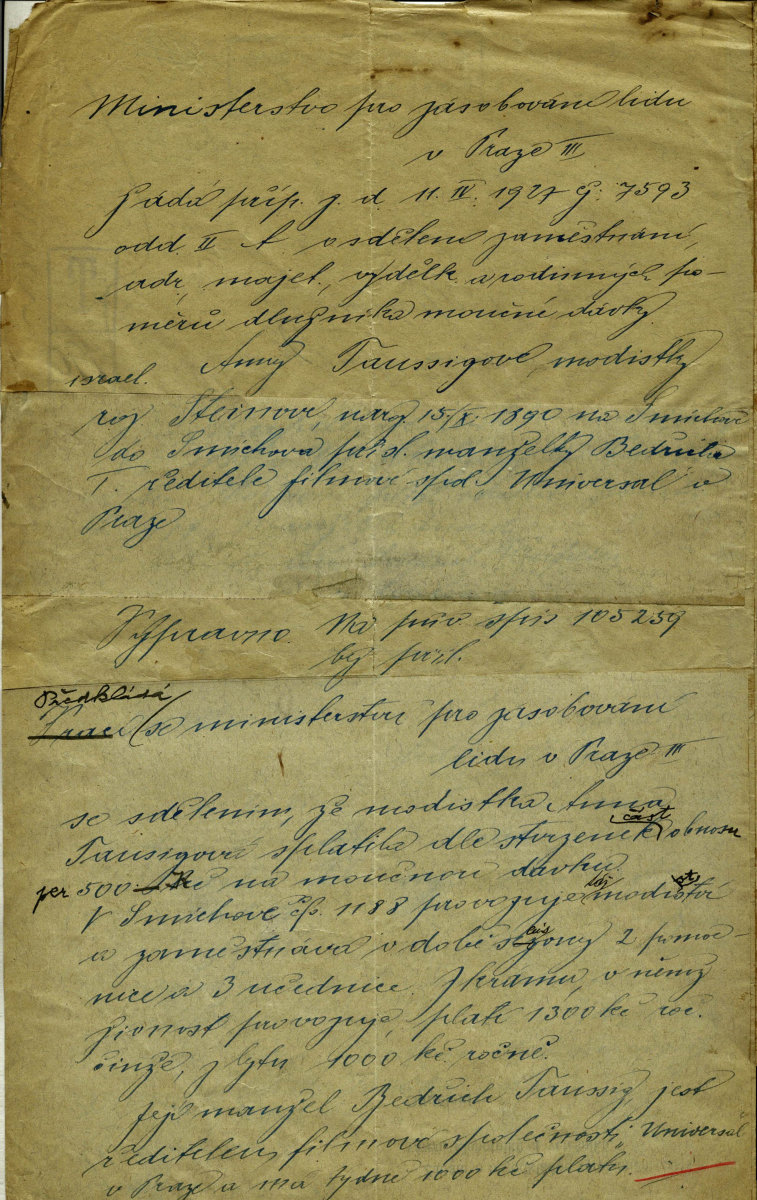 Ministerstvo pro zásobování lidu
v Praze III
žádá příp. z. d. 11. IV. 1927 č: 7593
odd. II A. o sdělení zaměstnání,
adr., majet., výdělk. a rodinných po-
měrů dlužníka moučné dávky
Anny Taussigové, modistky
israel.
roz Steinové, naroz 15/X. 1890 na Smíchově
do Smíchova přísl. manželky Bedřicha
T. ředitele filmové spol. „Universal" v
Praze
Vypraviti. Na pův spis 105259
bez příl.
Předkládá
Vrací se ministerstvu pro zásobování
lidu v Praze III
se sdělením, že modistka Anna
Taussigová splatila dle stvrzenek část obnosu
per 500 Kč na moučnou dávku
V Smíchově čp. 1188 provozuje modiství
a zaměstnává v době sezony 2 pomoc-
nice a 3 učednice. Z krámu, v němž
živnost provozuje, platí 1300 kč roč.
činže, z bytu 1000 kč. ročně.
Její manžel Bedřich Taussig jest
ředitelem filmové společnosti „Universal
v Praze a má týdně 1000 kč platu.